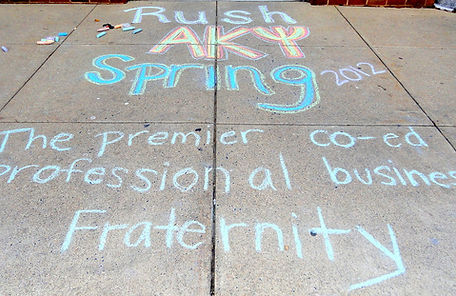 Rush
AKΨ
Spring 2012
The premier co-ed
professional business
Fraternity